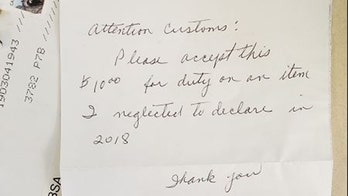 Attention Customs:
Please accept this
$10.00 for duty on an item
I neglected to declare in
2018
Thank you
19D3041943
3782 P7B
BSA